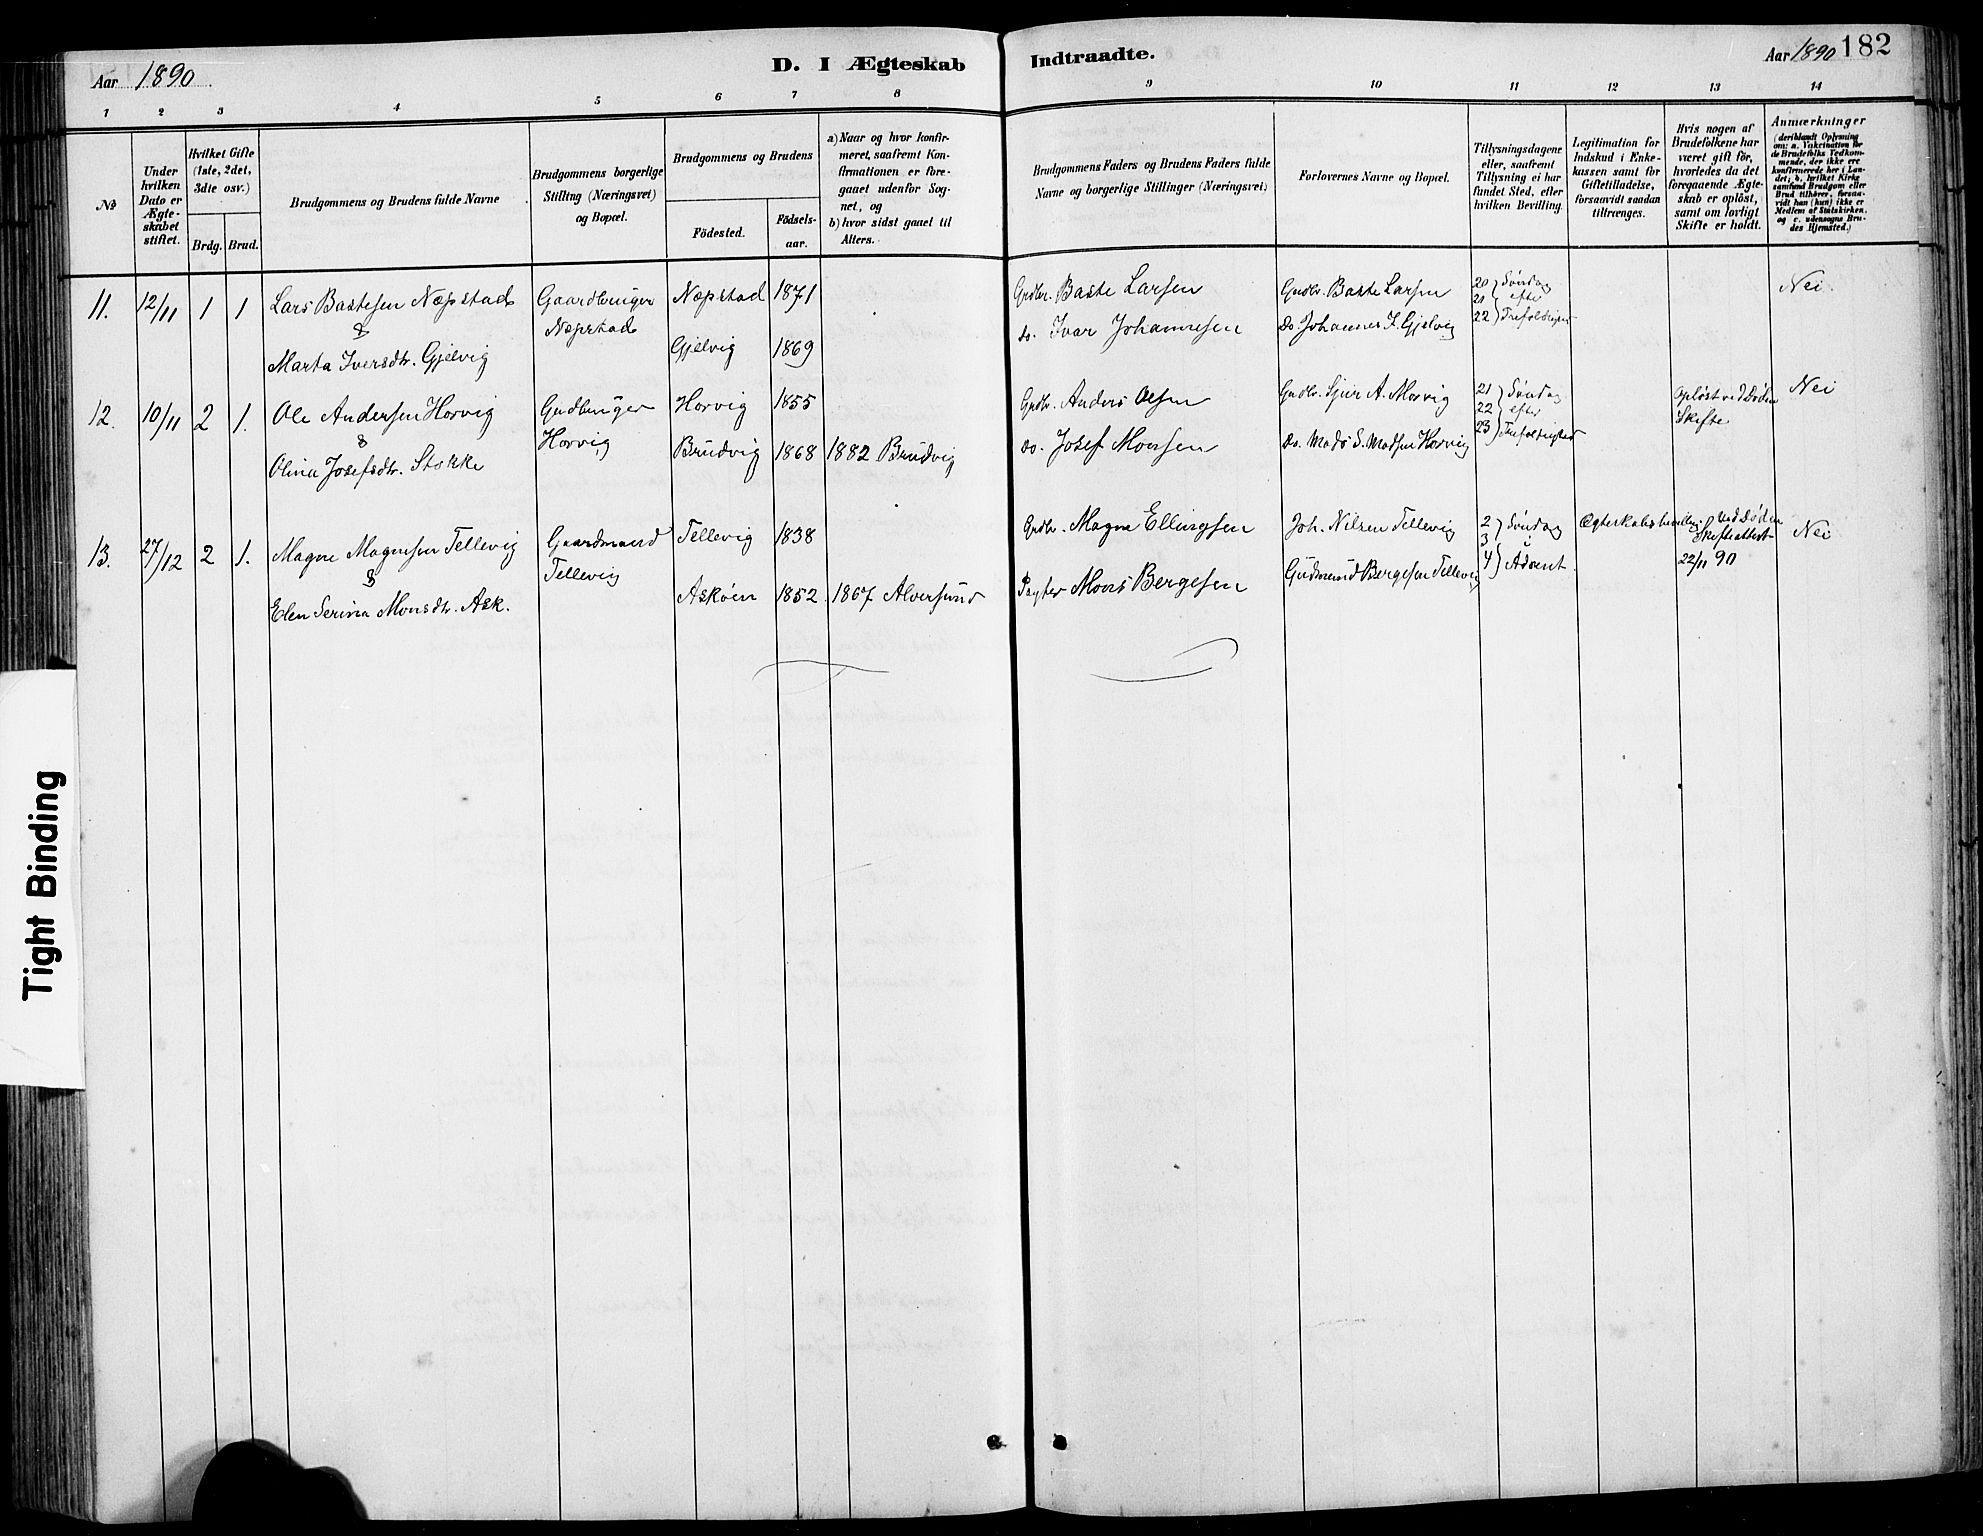 Aar 1890.
D. I Ægteskab
Indtraadte.
Aar 1890 182
1 2 3 4 5 6 7 8 9 10 11 12 13 14
№
Under
hvilken
Dato er
Ægte-
skabet
stiftet.
Hvilket Gifte
(1ste, 2det,
3die osv.)
Brdg. Brud.
Brudgommens og Brudens fulde Navne
Brudgommens borgerlige
Stilling (Næringsvei)
og Bopæl.
Brudgommens og Brudens
Födested.
Födsels-
aar.
a) Naar og hvor konfir-
meret, saafremt Kon-
firmationen er fore-
gaaet udenfor Sog-
net, og
b) hvor sidst gaaet til
Alters.
Brudgommens Faders og Brudens Faders fulde
Navne og borgerlige Stillinger (Næringsvei)
Forlovernes Navne og Bopæl.
Tillysningsdagene
eller, saafremt
Tillysning ei har
fundet Sted, efter
hvilken Bevilling.
Legitimation for
Indskud i Enke-
kassen samt for
Giftetilladelse,
forsaavidt saadan
tiltrænges.
Hvis nogen af
Brudefolkene har
været gift för,
hvorledes da det
foregaaende Ægte-
skab er oplöst,
samt om lovligt
Skifte er holdt.
Anmærkninger
(deriblandt Oplysning
om: a. Vakcination for
de Brudefolks Vedkom-
mende, der ikke ere
konfirmerede her i Lan-
det; b. hvilket Kirke
samfund Brudgom eller
Brud tilhører, forsaa-
vidt han (hun) ikke er
Medlem af Statskirken,
og c. udensogns Bru-
des Hjemsted.)
11. 12/11 1 1 Lars Bastesen Næpstad Gaardbruger Næpstad 1871 Grdbr. Baste Larsen Grdbr. Baste Larsen 20 Söndag Nei.
&
Næpstad
21 efter
Marta Iversdtr. Gjelvig Gjelvig 1869 do. Ivar Johannesen do. Johannes I. Gjelvig 22 Trefoldighed
12. 10/11 2 1. Ole Andersen Horvig Grdbruger Horvig 1855 Grdbr. Anders Olsen Grdbr. A. Horvig 21 Söndag Oplöst ved Döden Nei
&
Horvig
22 efter
Skifte
Olina Josefsdtr. Stokke Brudvig 1868 1882 Brudvig do. Josef Monsen do. Mads S. Madsen Horvig 23 Trefoldighed
13. 27/12 2 1. Magne Magnesen Tellevig Gaardmand Tellevig 1838 Grdbr. Magne Ellingsen Joh. Nilsen Tellevig 2 Söndag Ved Döden Nei
&
Tellevig
3 i
Skifteattest
Elen Serina Monsdtr. Ask. Askøen 1852 1867 Alversund Mons Bergesen Gudmund Bergesen Tellevig 4 Advent. 22/11 90
Tight Binding